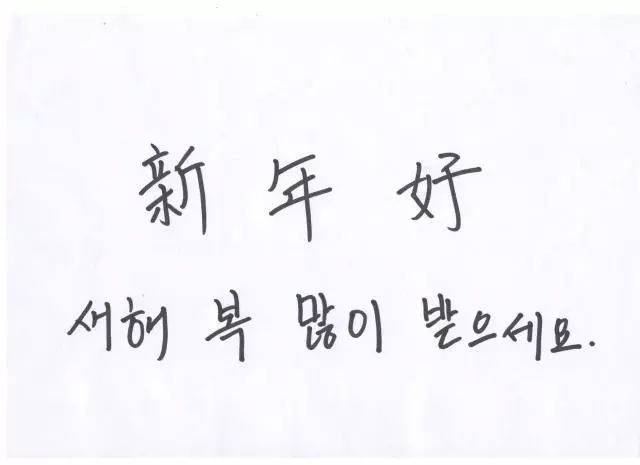 新年好
새해 복 많이 받으세요.